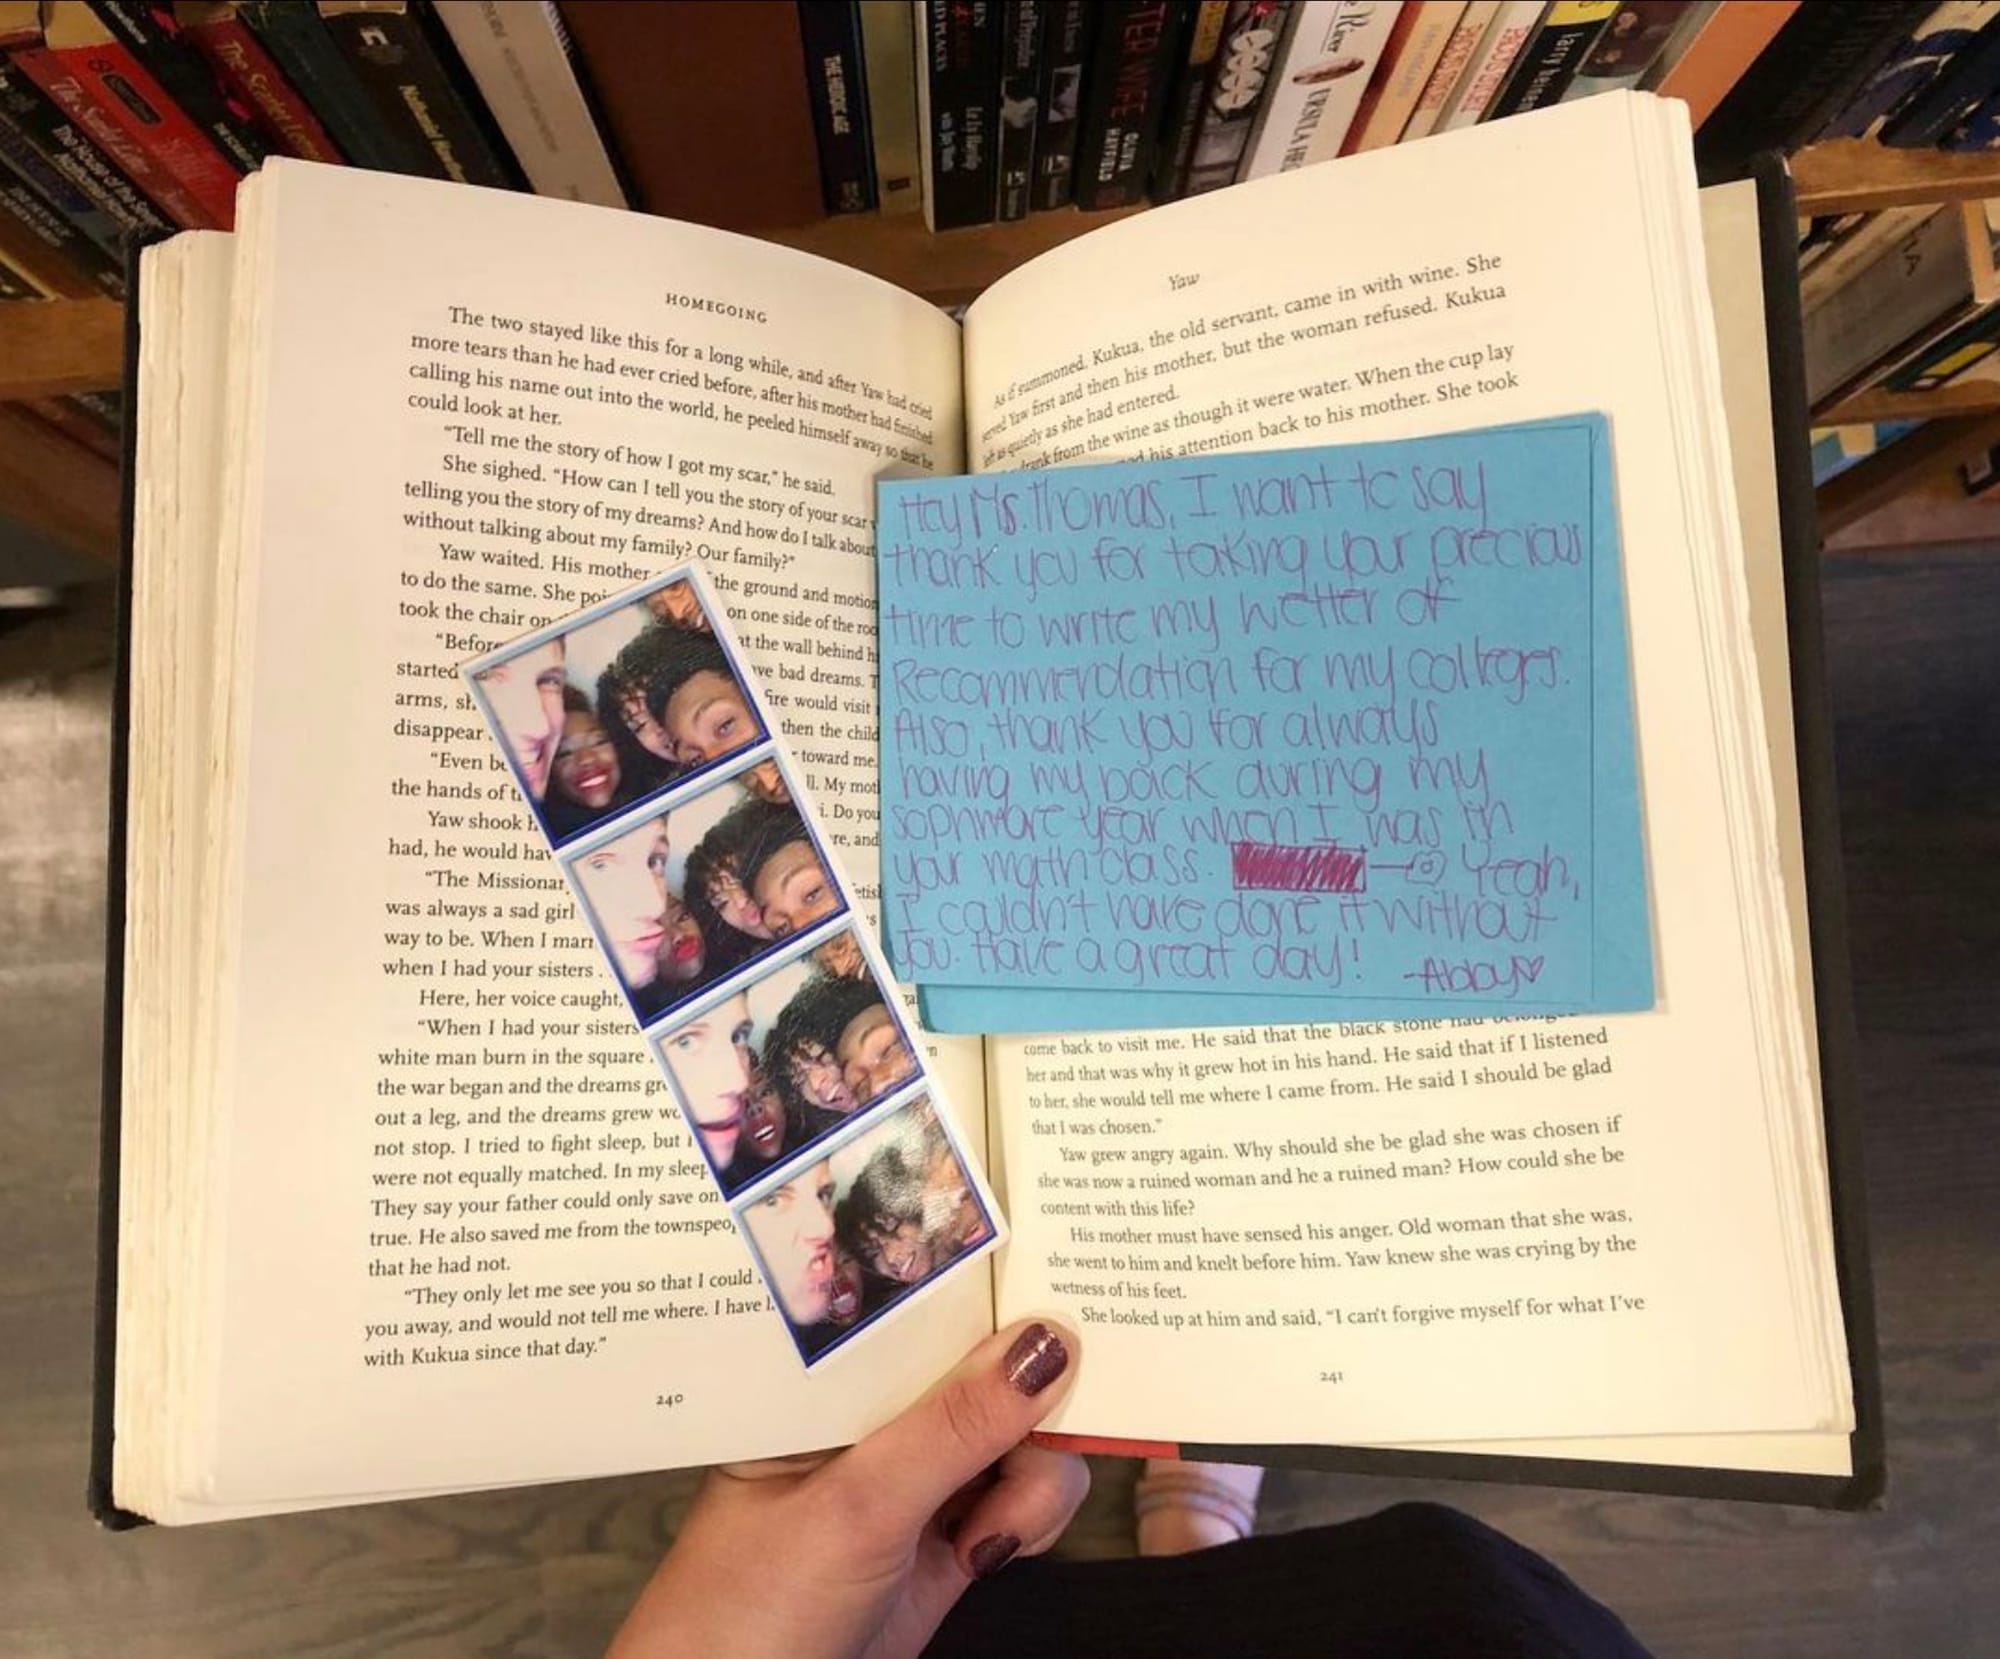 THE HEROIC AGE
OLIVIA
HAYFIELD
HOMEGOING
The two stayed like this for a long while, and after Yaw had cried
more tears than he had ever cried before, after his mother had finished
calling his name out into the world, he peeled himself away so that he
could look at her.
“Tell me the story of how I got my scar,” he said.
She sighed. “How can I tell you the story of your scar
telling you the story of my dreams? And how do I talk about
without talking about my family? Our family?”
Yaw waited. His mother the ground and motion
to do the same. She on one side of the
took the chair on at the wall behind
“Before ve bad dreams.
started fire would visit
arms, then the child
disappear toward me.
“Even ll. My
the hands of i. Do you
Yaw shook re, and
had, he would
“The
was always a sad girl
way to be. When I
when I had your sisters
Here, her voice caught,
“When I had your sisters
white man burn in the square
the war began and the dreams
out a leg, and the dreams grew
not stop. I tried to fight sleep, but
were not equally matched. In my sleep
They say your father could only save
true. He also saved me from the
that he had not.
“They only let me see you so that I could
you away, and would not tell me where. I have
with Kukua since that day.”
240
Yaw
As if summoned, Kukua, the old servant, came in with wine. She
served Yaw first and then his mother, but the woman refused. Kukua
left as quietly as she had entered.
drank from the wine as though it were water. When the cup lay
his attention back to his mother. She took
Hey Ms. Thomas, I want to say
thank you for taking your precious
time to write my Letter of
Recommendation for my colleges.
Also, thank you for always
having my back during my
sophmore year when I was in
your math class. Yeah,
I couldn't have done it without
you. Have a great day! -Abby♡
come back to visit me. He said that the black stone had
her and that was why it grew hot in his hand. He said that if I listened
to her, she would tell me where I came from. He said I should be glad
that I was chosen.”
Yaw grew angry again. Why should she be glad she was chosen if
she was now a ruined woman and he a ruined man? How could she be
content with this life?
His mother must have sensed his anger. Old woman that she was,
she went to him and knelt before him. Yaw knew she was crying by the
wetness of his feet.
She looked up at him and said, “I can't forgive myself for what I've
241